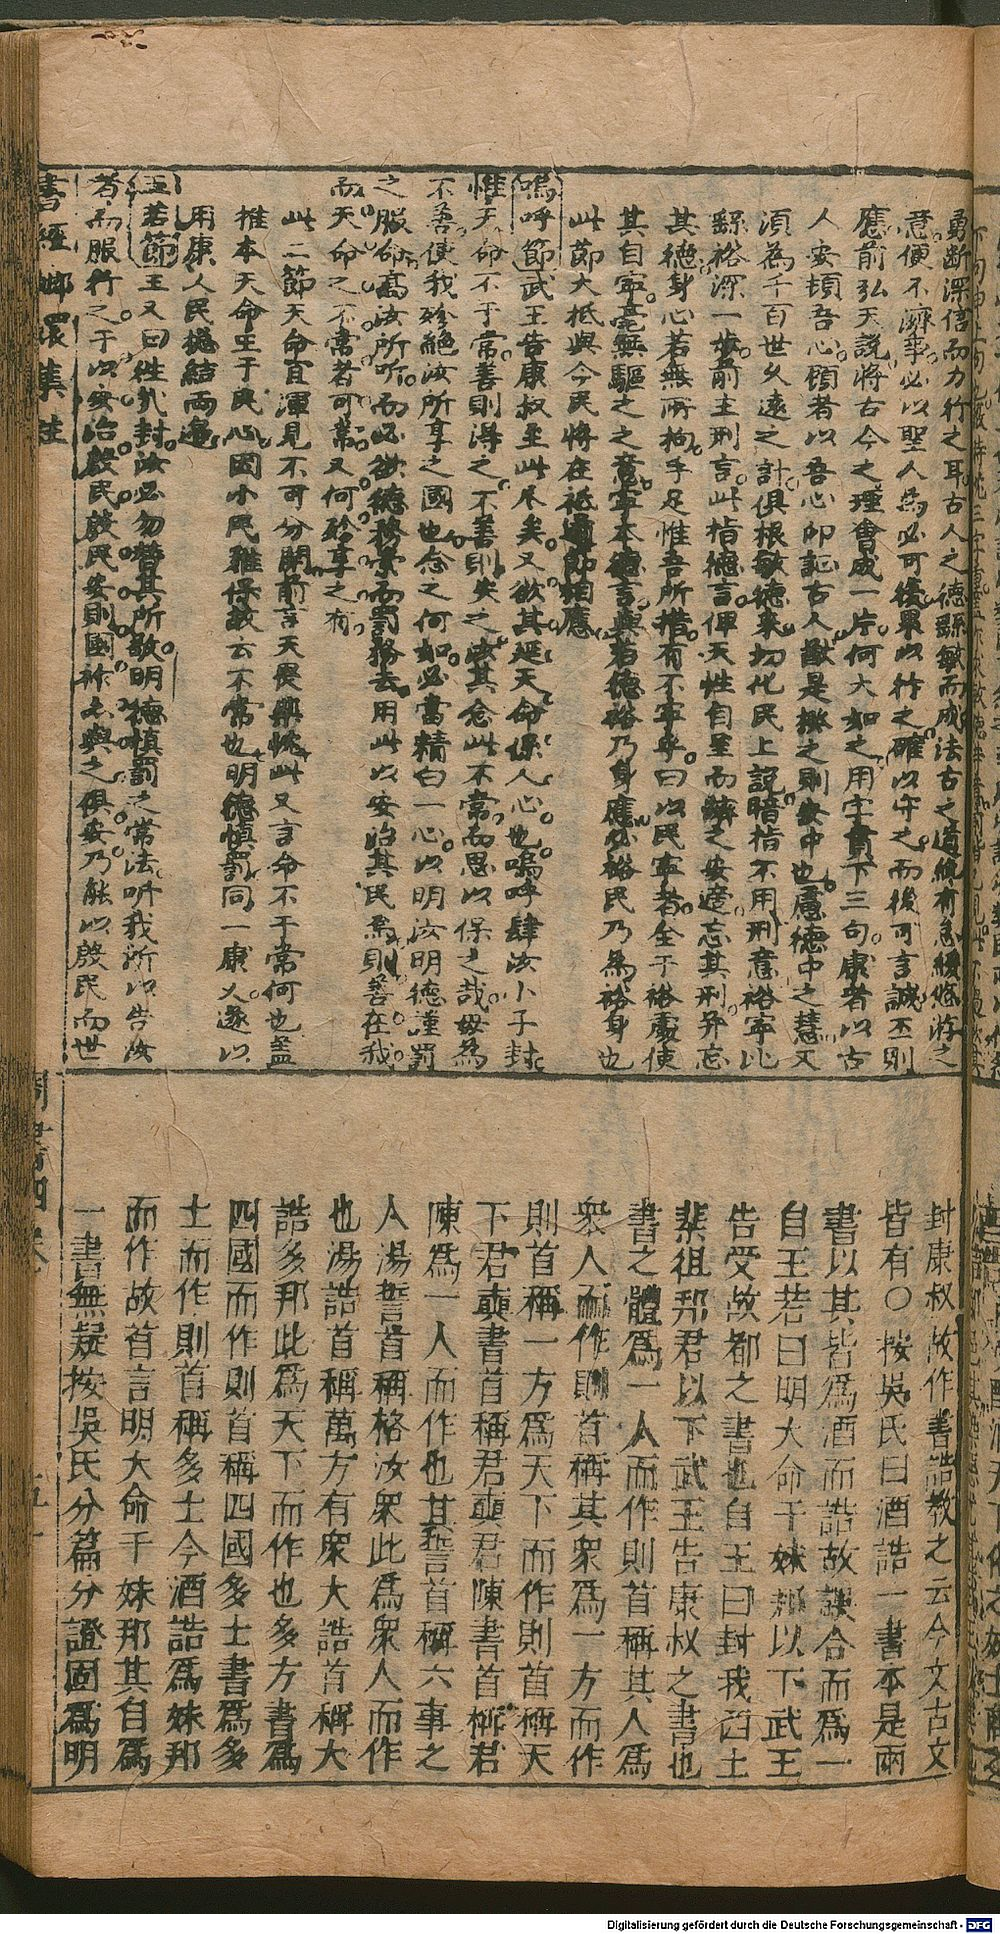 勇斷深信而力行之耳古人之德繇敏而成法古之道總有急緩悠游之
意便不濟事必以聖人爲必可後果以行之確以守之而後可言誠丕則
應前弘天說將古今之理會成一片何大如之用字貫下三句康者以古
人安頓吾心顧者以吾心卬証古人猷是擬之則安中也慮德中之慧又
須為千百世久遠之計俱根敏德來切化民上説暗指不用刑意裕寧比
繇裕深一步前主刑言此指德言俾天性自呈而躋之安遼忘其刑并忘
其德身心若無所拘手足惟吾所措有不寧乎曰以民寧者全于裕處使
其自寧毫無驅之之意寧本德言與若德裕乃身應必裕民乃爲裕身也
此節大抵與今民將在祗遹節相應
嗚呼節武王告康叔至此尽矣又欲其延天命保人心也嗚呼肆汝小子封
惟天命不于常善則得之不善則失之汝其念此不常而思以保之哉毋為
不善使我殄絕汝所享之國也念之何如必當精白一心以明汝明德謹罰
之服命高汝所听而必欲德務崇而罰務去用此以安治其民焉則善在我
而天命之不常者可常又何殄享之有
此二節天命宜渾見不可分開前言天畏棐忱此又言命不于常何也蓋
推本天命主于民心因小民難保故云不常也明德慎罰同一康乂遂以
用康人民總結兩邊
王若節王又曰徃㢤封汝必勿替其所敬明德慎罰之常法听我所以告汝
者而服行之于以安治殷民殷民安則國祚與之俱安乃能以殷民而世
書經 集註
周書四卷
封康叔故作書誥教之云今文古文
皆有〇按吳氏曰酒誥一書本是兩
書以其皆爲酒而誥故誤合而爲一
自王若曰明大命于妹邦以下武王
告受故都之書也自王曰封我西土
棐徂邦君以下武王告康叔之書也
書之體爲一人而作則首稱其人爲
衆人而作則首稱其衆爲一方而作
則首稱一方爲天下而作則首稱天
下君奭書首稱君奭君陳書首稱君
陳爲一人而作也其誓首稱六事之
人湯誓首稱格汝衆此爲衆人而作
也湯誥首稱萬方有衆大誥首稱大
誥多邦此爲天下而作也多方書爲
四國而作則首稱四國多士書爲多
士而作則首稱多士今酒誥爲妹邦
而作故首言明大命于妹邦其自爲
一書無疑按吳氏分篇分證固爲明
Digitalisierung gefördert durch die Deutsche Forschungsgemeinschaft - DFG